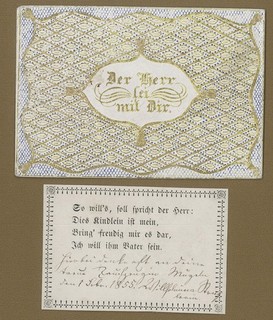 Der Herr
sei
mit Dir.
So will's, soll spricht der Herr:
Dies Kindlein ist mein,
Bring' freudig mir es dar,
Ich will ihm Vater sein.
denke oft an deine
treue Taufzeugin
den 1 1855